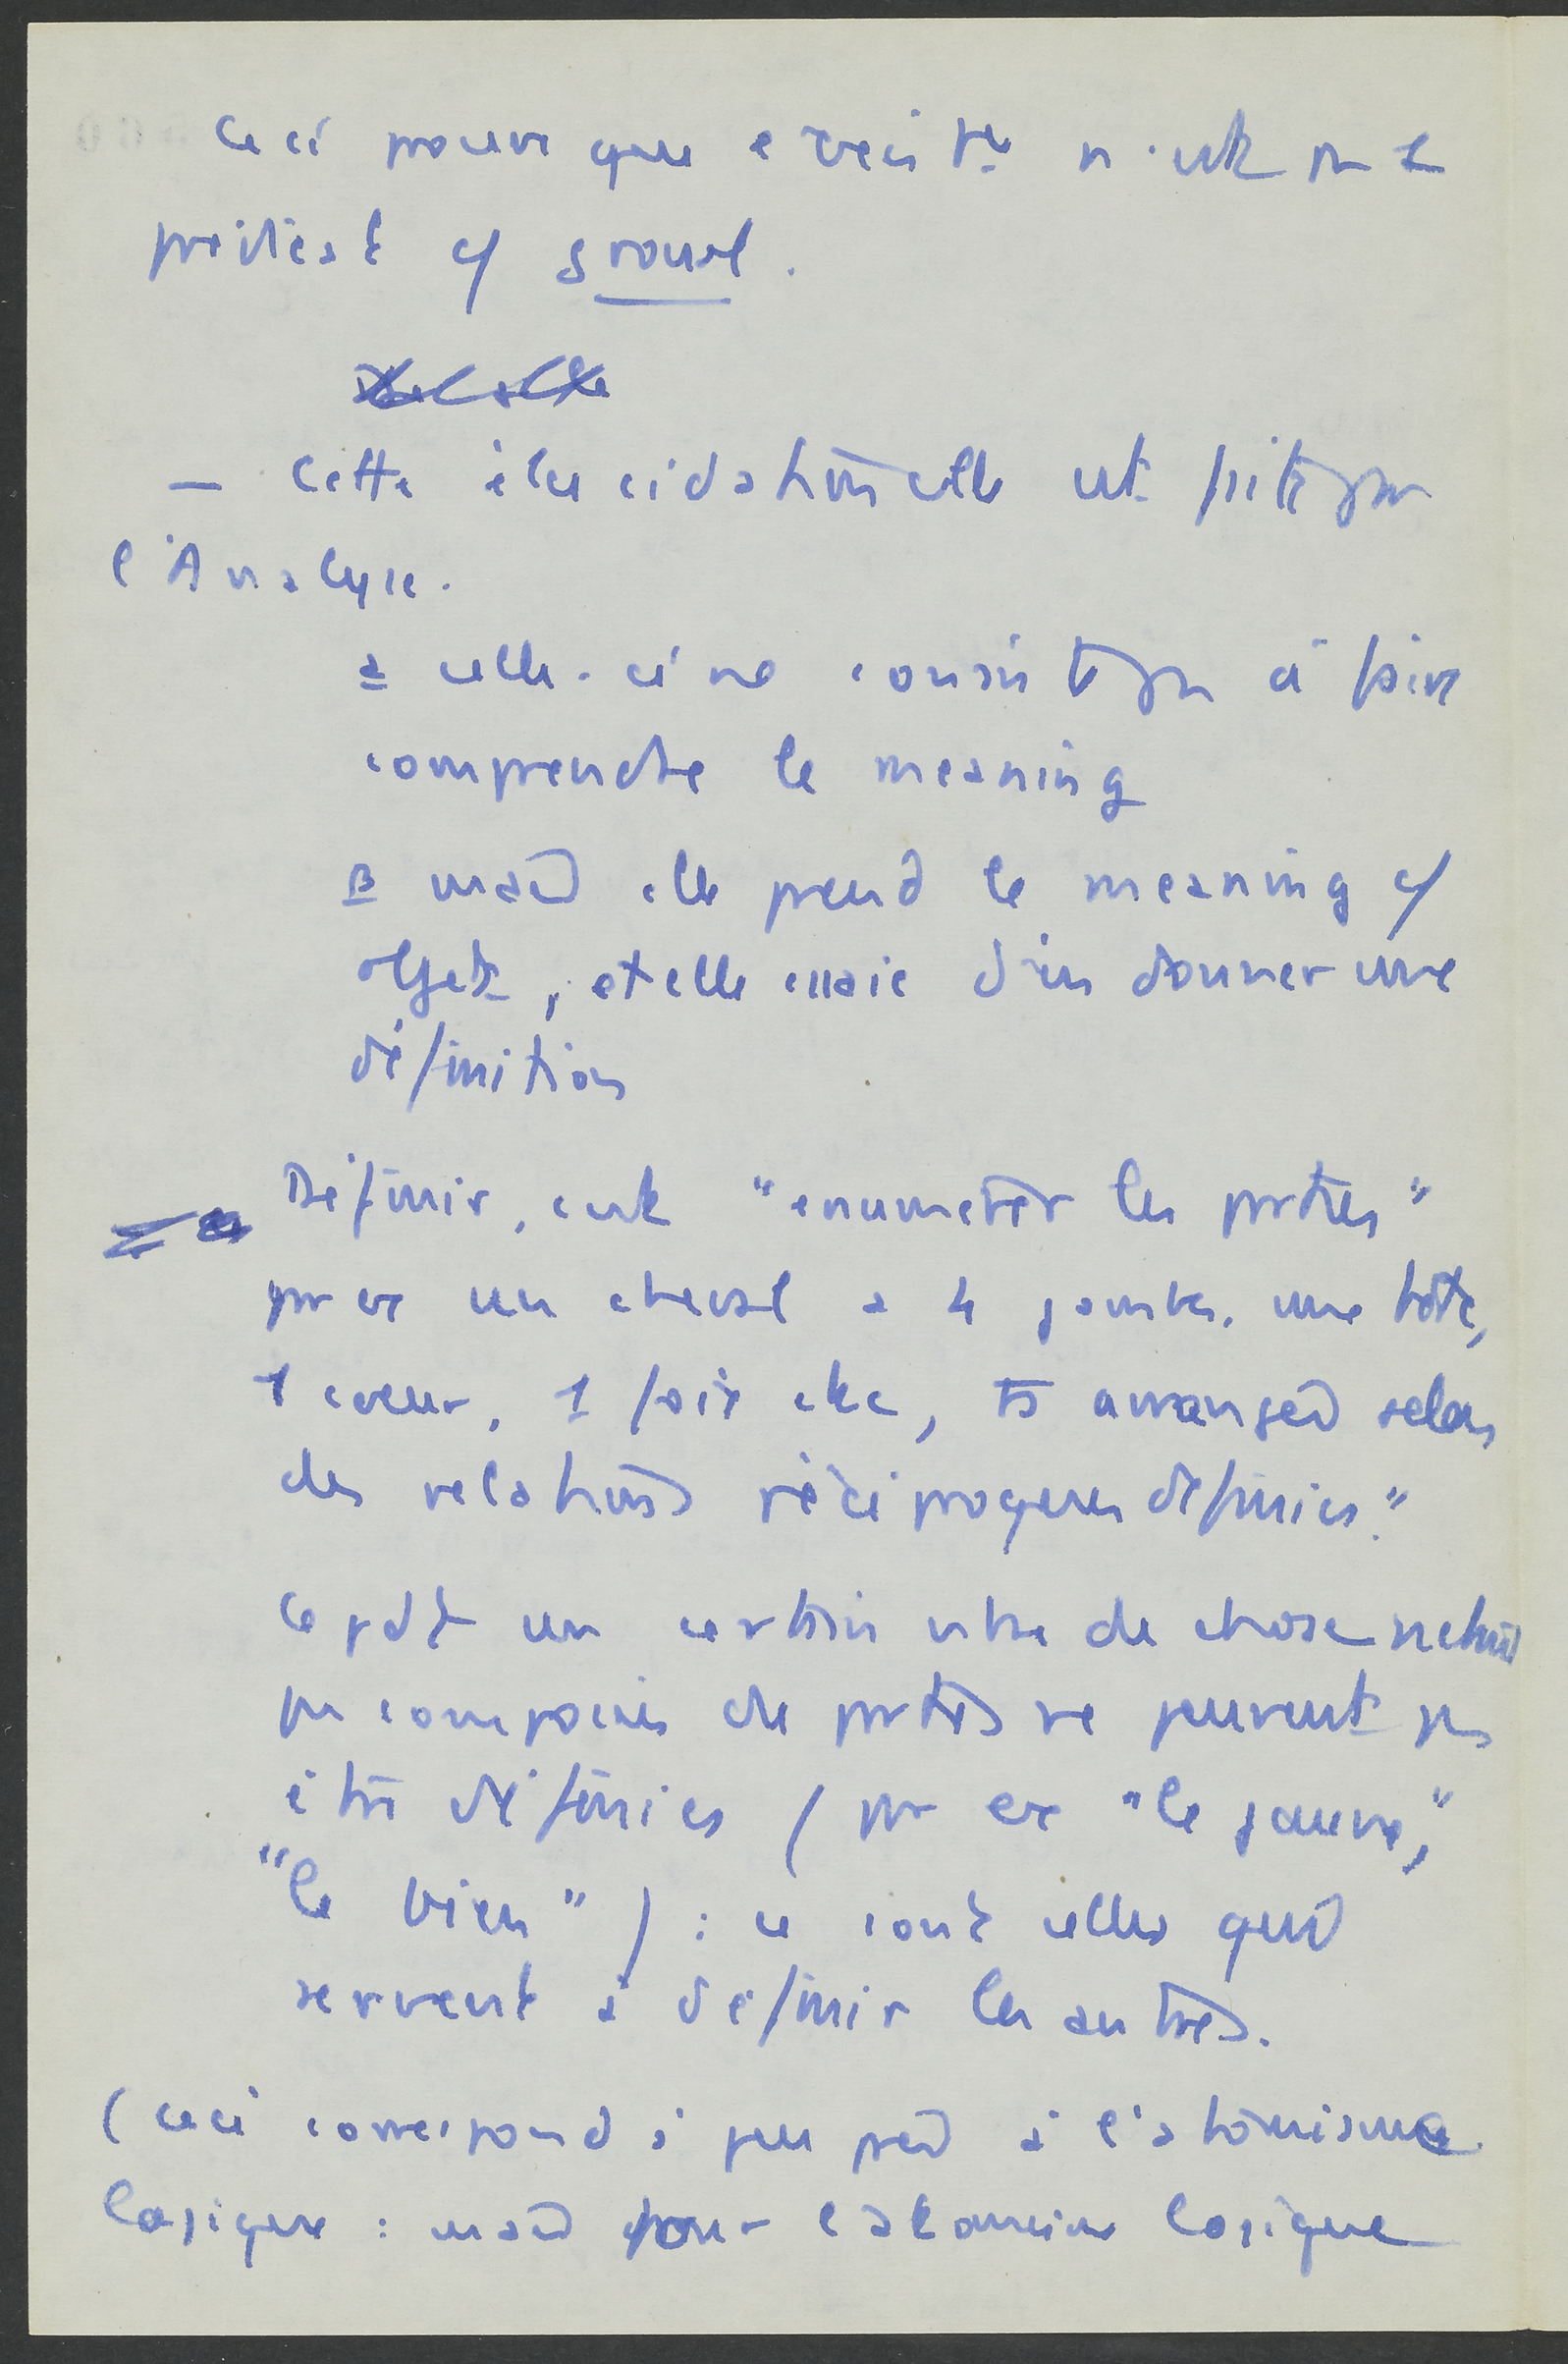 Ceci prouve que exister n'est pas 1
prédicat c/ growl.
— Cette élucidation elle est faite par
l'Analyse.
α celle-ci ne consiste pas à faire
comprendre le meaning
β mais elle prend le meaning c/
objet, et elle essaie d'en donner une
définition
Définir, c'est "enumérer les parties"
par ex un cheval a 4 jambes, une tête,
1 coeur, 1 foie etc, ts arrangés selon
des relations réciproques définies."
Cpdt un certain nbre de chose n'étant
pas composées de parties ne peuvent pas
être définies (par ex "le jaune",
"le bien") : ce sont celles qui
servent à définir les autres.
(ceci correspond à peu près à l'atomisme
logique : mais pour l'atomisme logique